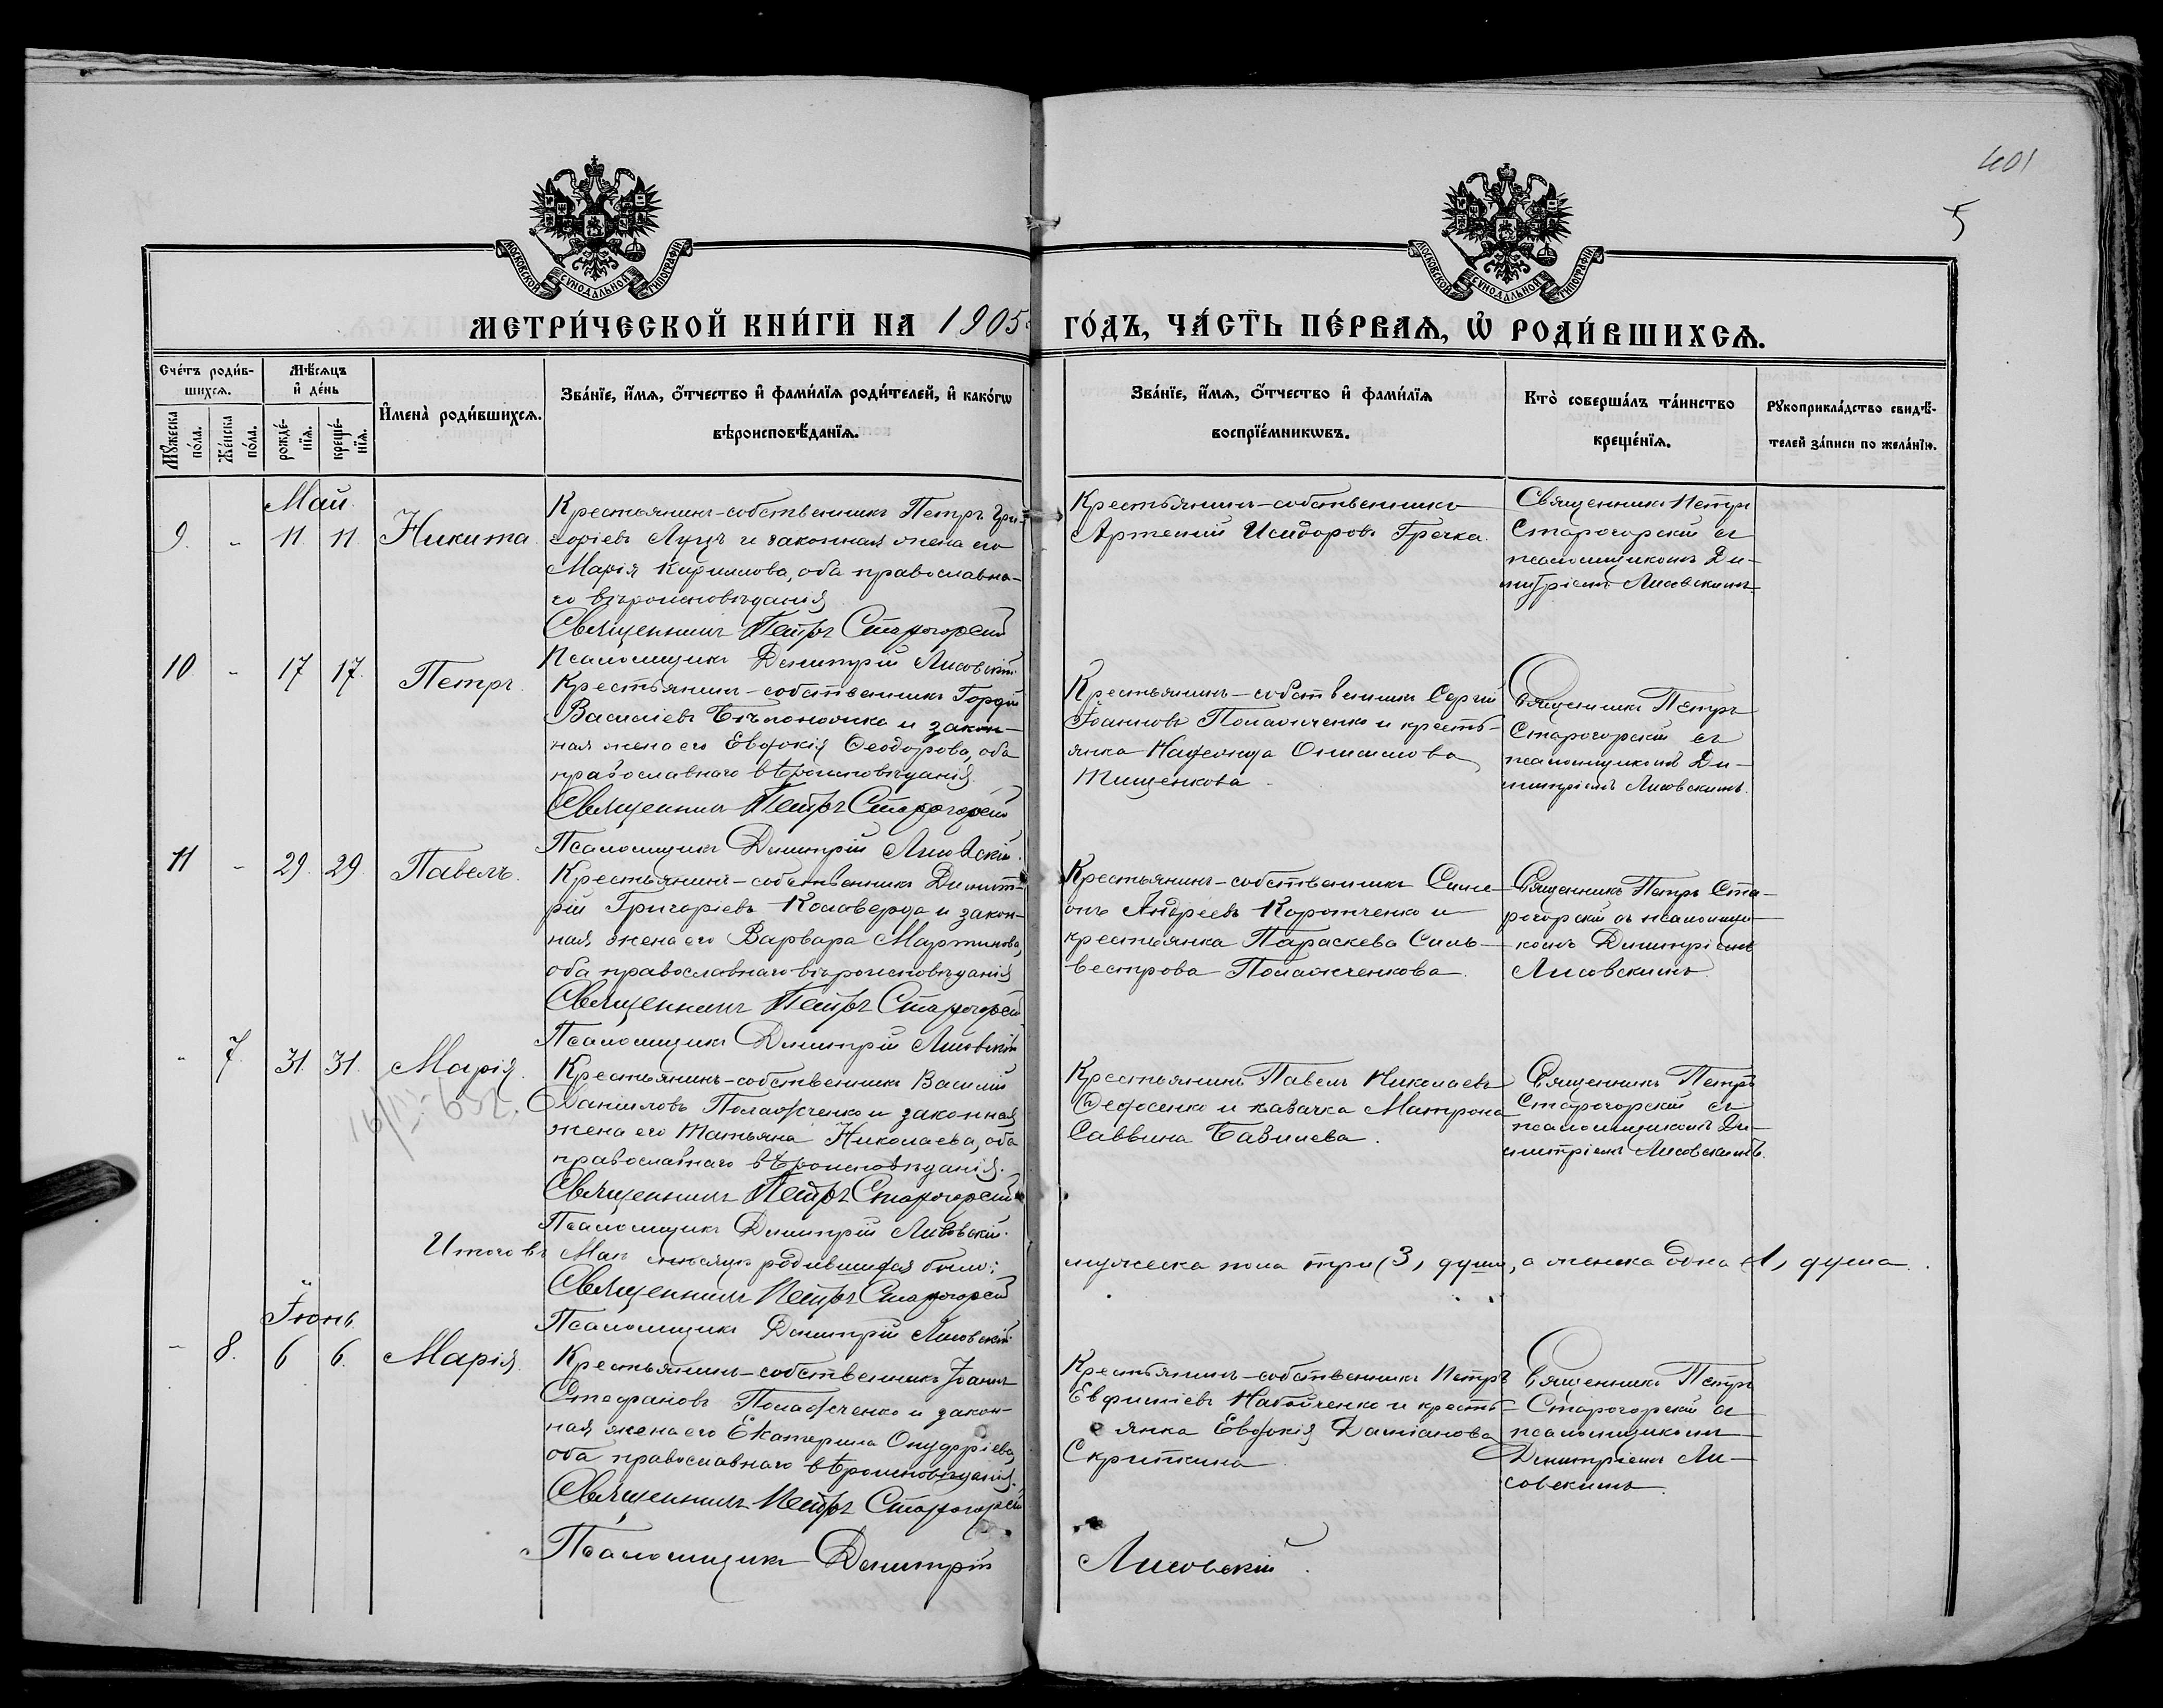 401
5
МОСКОВСКОЙ СѴНОДАЛЬНОЙ ТИПОГРАФІИ
МОСКОВСКОЙ СѴНОДАЛЬНОЙ ТИПОГРАФІИ
МЕТРИ́ЧЕСКОЙ КНИ́ГИ НА 1905
ГО́ДЪ, ЧА́СТЬ ПЕ́РВАѦ, Ѡ҆ РОДИ́ВШИХСѦ.
Сче́тъ роди́в-
шихсѧ.
Мꙋжеска по́ла.
Же́нска по́ла.
Мѣ́сѧцъ
и҆ де́нь
рожде́-
нїѧ.
креще́-
нїѧ.
И҆мена̀ роди́вшихсѧ.
Зва́нїе, и҆́мѧ, ѻ҆́тчество и҆ фами́лїѧ роди́телей, и҆ како́гѡ
вѣроисповѣ́данїѧ.
Зва́нїе, и҆́мѧ, ѻ҆́тчество и҆ фами́лїѧ
воспрїе́мникѡвъ.
Кто̀ соверша́лъ та́инство
креще́нїѧ.
Рꙋкоприкла́дство свидѣ́-
телей за́писи по жела́нїю.
Май.
9. - 11. 11. Никита.
Крестьянинъ-собственникъ Петръ Гри-
горіевъ Луцъ и законная жена его
Марія Кириллова, оба православна-
го вѣроисповѣданія
Священникъ Петръ Старогорскій
Псаломщикъ Димитрій Лисовскій.
Крестьянинъ-собственникъ
Артемій Исидоровъ Гречка.
Священникъ Петръ
Старогорскій съ
псаломщикомъ Ди-
митріемъ Лисовскимъ
10 - 17 17. Петръ.
Крестьянинъ-собственникъ Гордій
Василіевъ Бѣлоножко и закон-
ная жена его Евдокія Ѳеодорова, оба
православнаго вѣроисповѣданія.
Священникъ Петръ Старогорскій
Псаломщикъ Димитрій Лисовскій.
Крестьянинъ-собственникъ Сергій
Іоанновъ Полажченко и кресть-
янка Онисимова
Тищенкова.
Священникъ Петръ
Старогорскій съ
псаломщикомъ Ди-
митріемъ Лисовскимъ.
11 - 29. 29. Павелъ.
Крестьянинъ-собственникъ Димит-
рій Григоріевъ Коловерда и закон-
ная жена его Варвара Мартинова,
оба православнаго вѣроисповѣданія
Священникъ Петръ Старогорскій
Псаломщикъ Димитрій Лисовскій
Крестьянинъ-собственникъ Симе-
онъ Андреевъ Коротченко и
крестьянка Параскева Силь-
вестрова Полажченкова.
Священникъ Петръ Ста-
рогорскій съ псаломщи-
комъ Димитріемъ
Лисовскимъ.
- 7. 31. 31. Марія.
Крестьянинъ-собственникъ Василій
Даніиловъ Полажченко и законная
жена его Татьяна Николаева, оба
православнаго вѣроисповѣданія.
Священникъ Петръ Старогорскій
Псаломщикъ Димитрій Лисовскій.
Крестьянинъ Павелъ Николаевъ
Ѳедосенко и казачка Матрона
Саввина Бавилева.
Священникъ Петръ
Старогорскій съ
псаломщикомъ Ди-
митріемъ Лисовскимъ.
Итого въ Маѣ мѣсяцѣ родившихся было: мужеска пола три (3) души, а женска одна (1) душа.
Священникъ Петръ Старогорскій
Псаломщикъ Димитрій Лисовскій
Іюнь.
- 8. 6 6. Марія.
Крестьянинъ-собственникъ Іоаннъ
Стефановъ Полажченко и закон-
ная жена его Екатерина Онуфріева,
оба православнаго вѣроисповѣданія.
Священникъ Петръ Старогорскій
Псаломщикъ Димитрій Лисовскій.
Крестьянинъ-собственникъ Петръ
Евфиміевъ Набойченко и кресть-
янка Евдокія Даміанова
Скрипкина.
Священникъ Петръ
Старогорскій съ
псаломщикомъ
Димитріемъ Ли-
совскимъ.